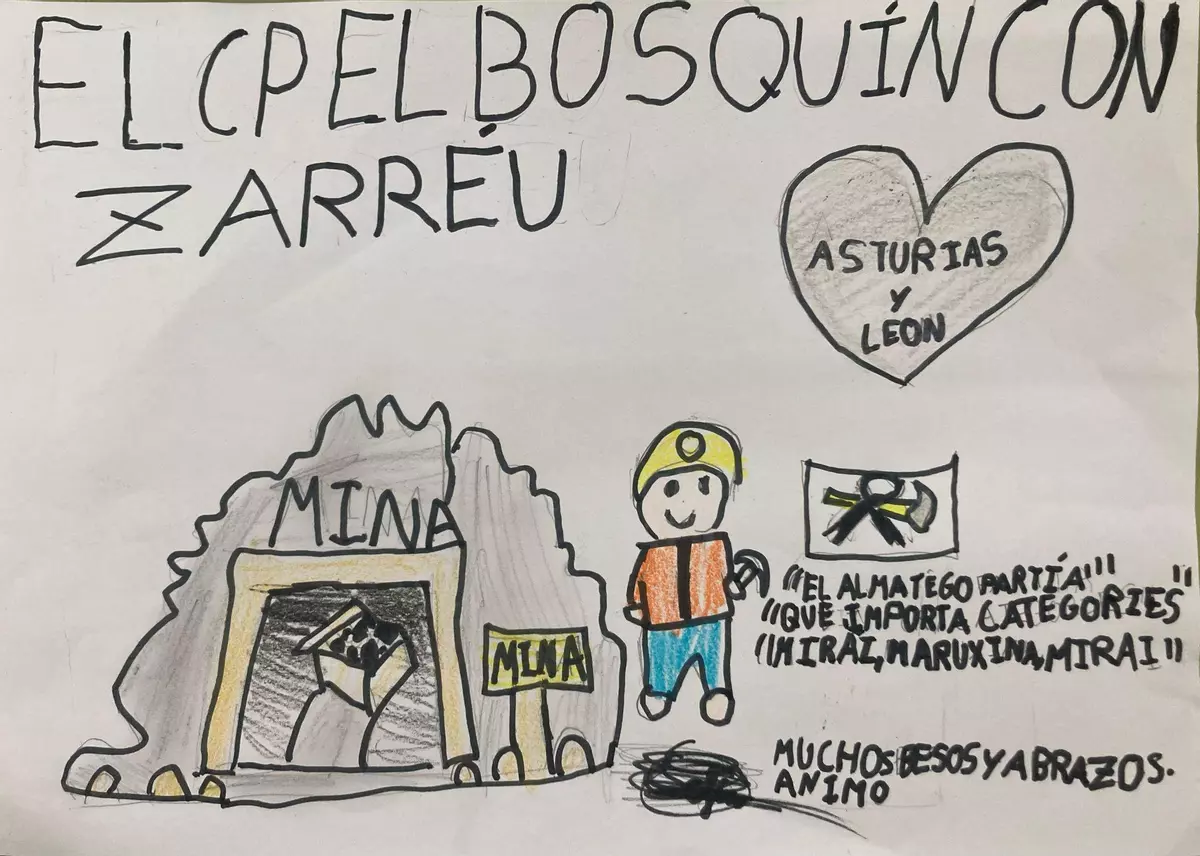 EL CP EL BOSQUÍN CON
ZARRÉU
ASTURIAS
Y
LEON
MINA
MINA
"EL ALMA TEGO PARTÍA"
"QUE IMPORTA CATEGORIES"
"MIRAI, MARUXINA, MIRAI"
MUCHOS BESOS Y ABRAZOS.
ANIMO